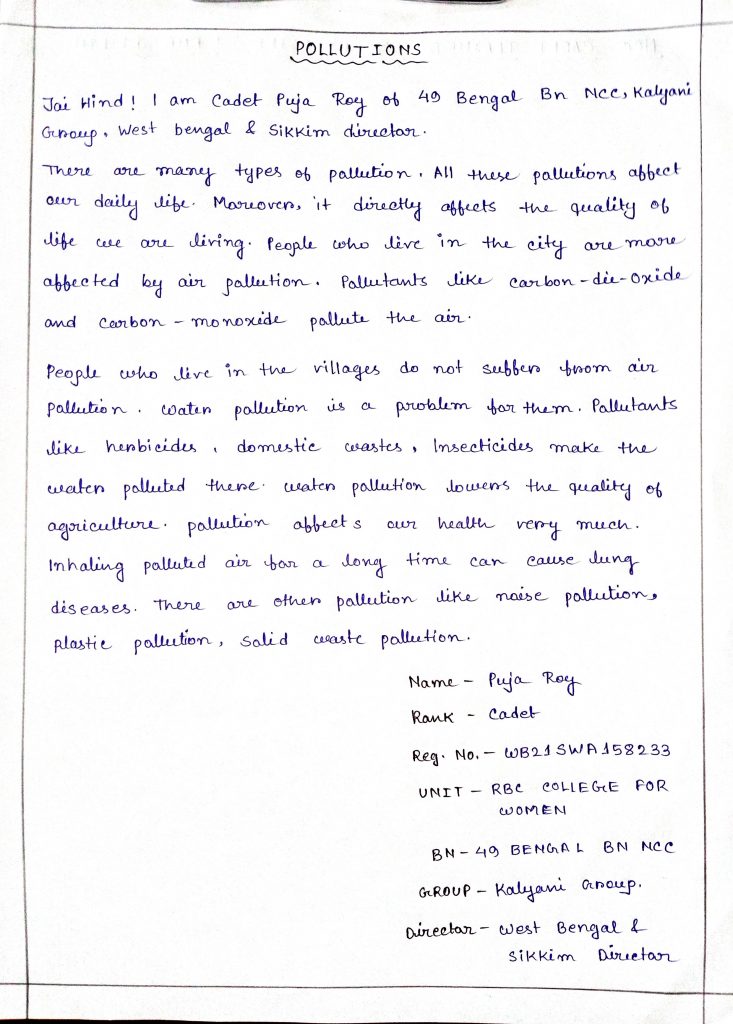 POLLUTIONS
Jai Hind! I am Cadet Puja Roy of 49 Bengal Bn Ncc, Kalyani
Group, West bengal & Sikkim director.
There are many types of pollution. All these pollutions affect
our daily life. Moreover, it directly affects the quality of
life we are living. People who live in the city are more
affected by air pollution. Pollutants like carbon-die-Oxide
and carbon-monoxide pollute the air.
People who live in the villages do not suffer from air
pollution. water pollution is a problem for them. Pollutants
like herbicides, domestic wastes, Insecticides make the
water polluted there. water pollution lowers the quality of
agoriculture. pollution affects our health very much.
Inhaling polluted air for a long time can cause lung
diseases. There are other pollution like noise pollution,
plastic pollution, solid waste pollution.
Name - Puja Roy
Rank - Cadet
Reg. No. - WB21SWA158233
UNIT - RBC COLLEGE FOR
WOMEN
BN - 49 BENGAL BN NCC
GROUP - Kalyani Group.
Director - West Bengal &
Sikkim Director